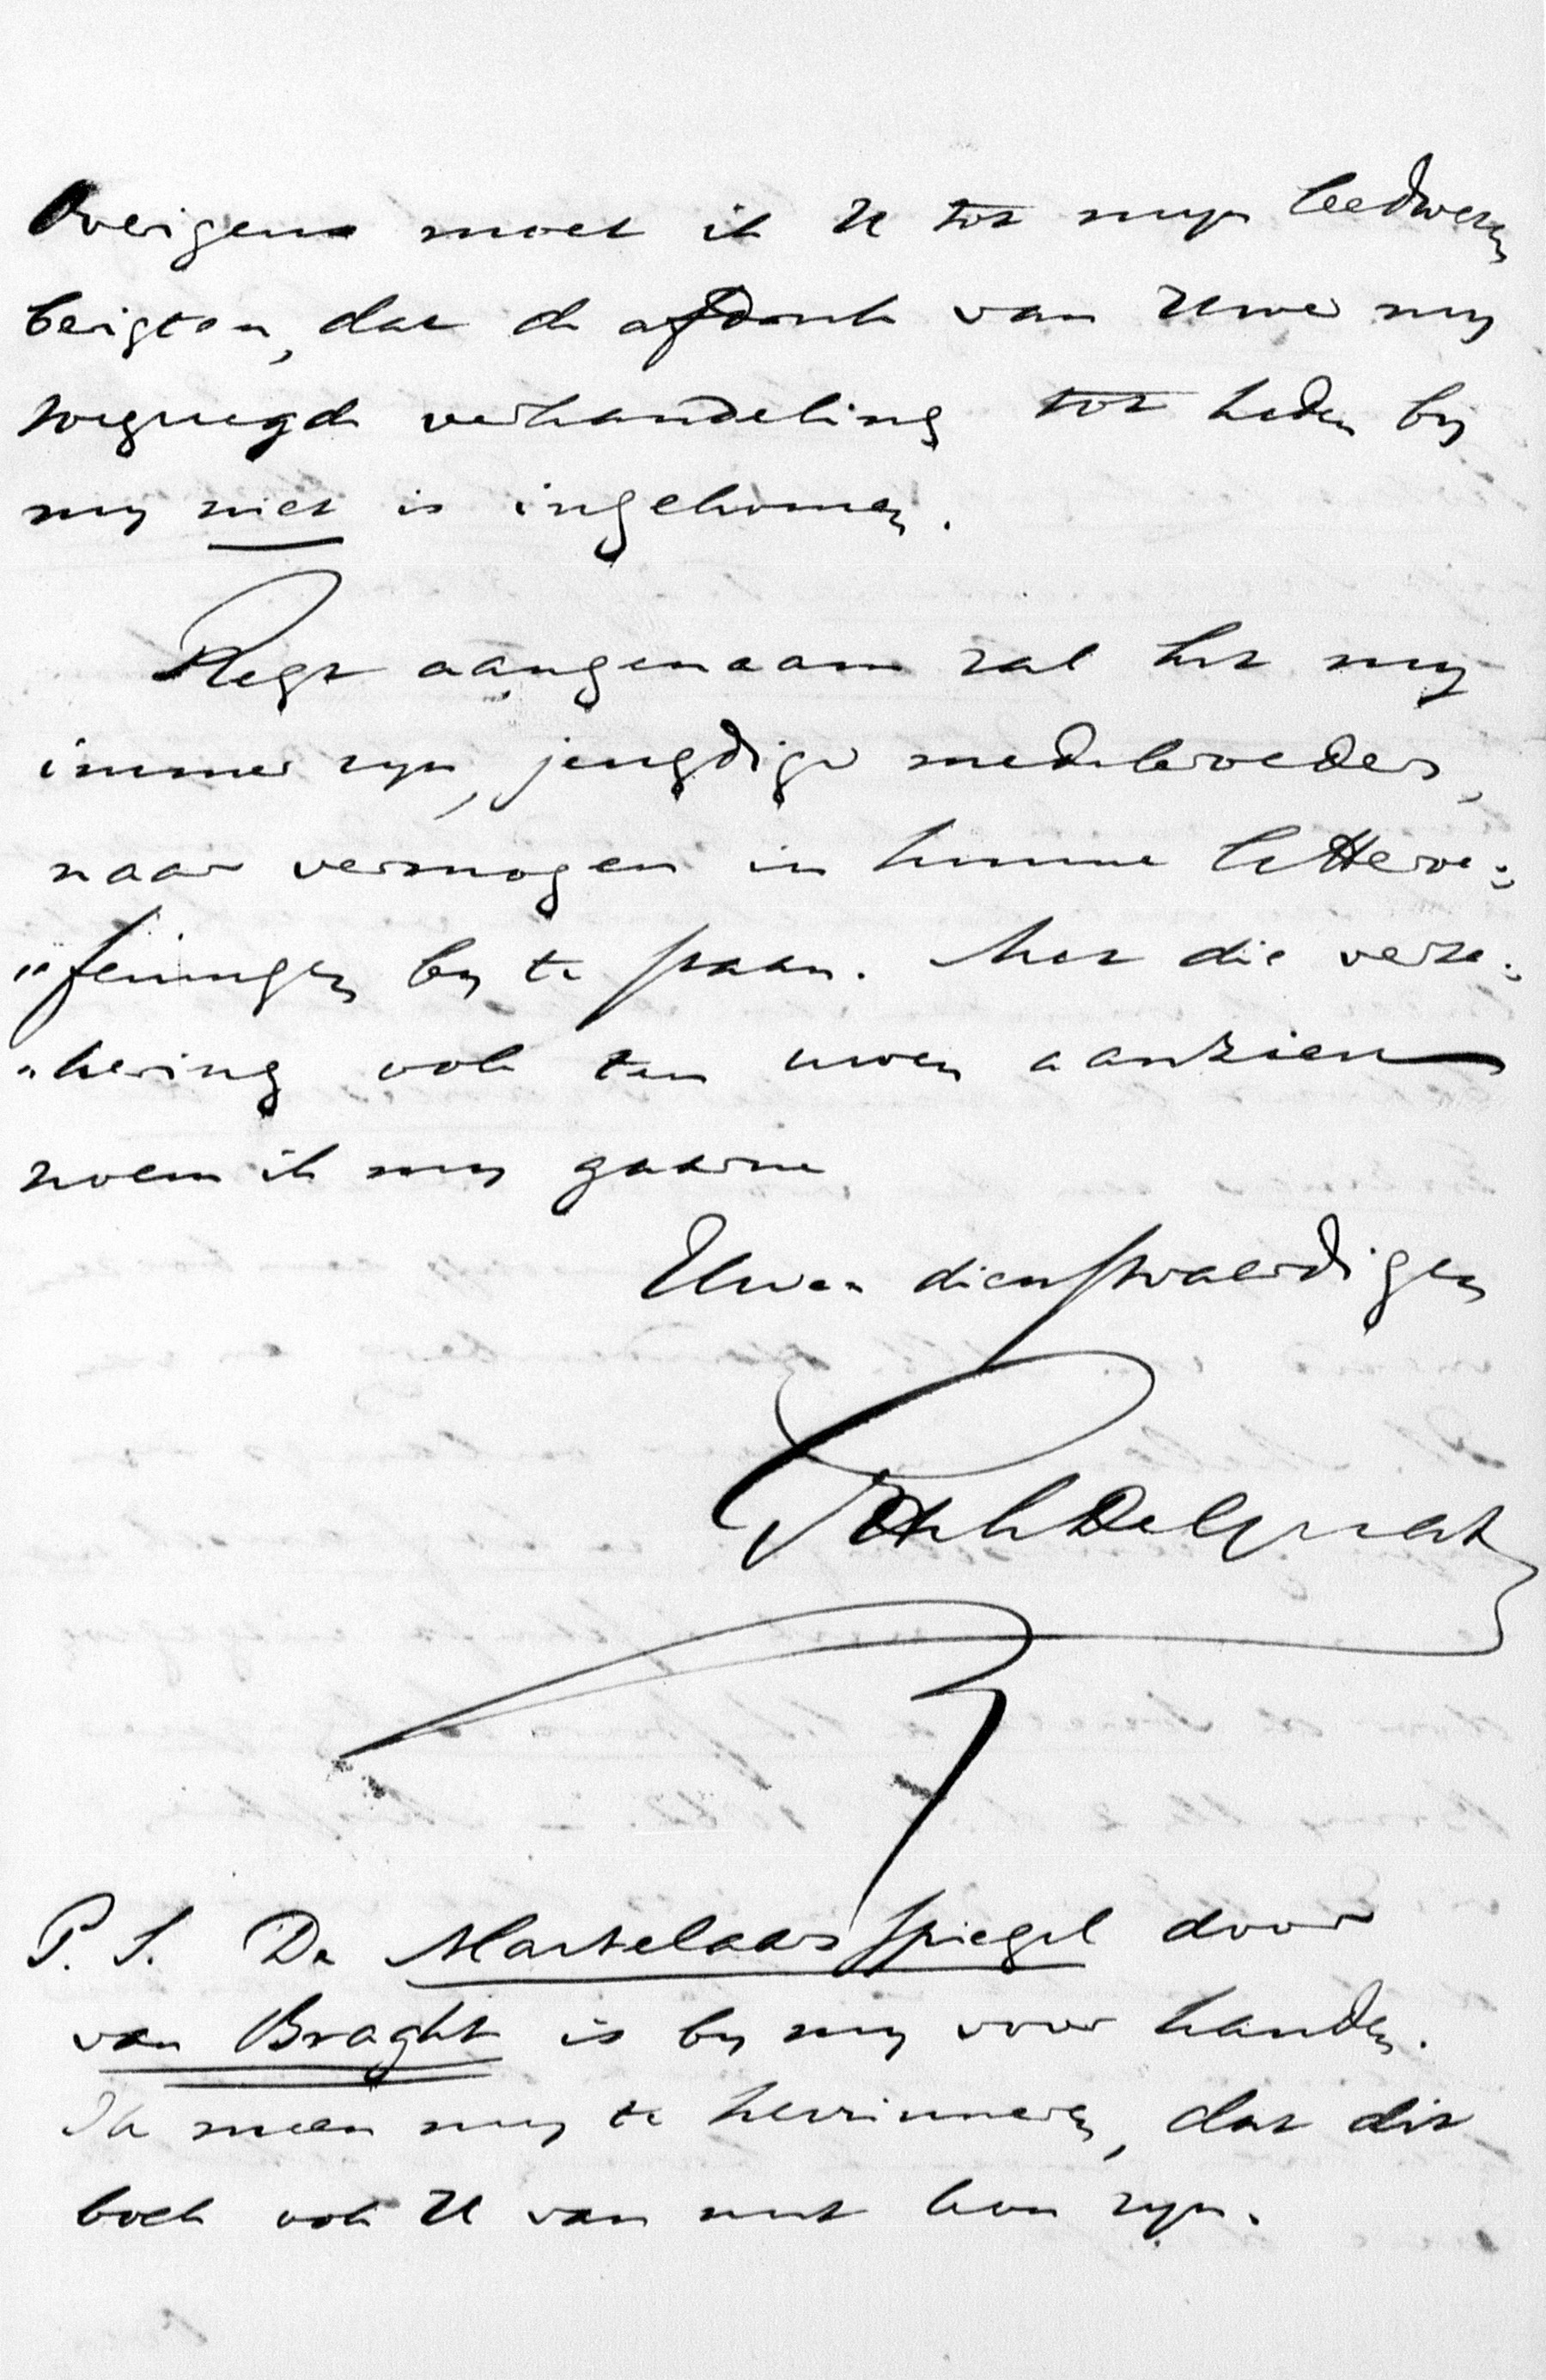 Overigens moet ik U tot myn leedwezen
berigten, dat de afdruk van Uwe my
toegezegde verhandeling tot heden by
my niet is ingekomen.
Regt aangenaam zal het my
immer zyn, jeugdige medebroeders,
naar vermogen in hunne letteroe:
"feningen by te staan. Met die verze:
"kering ook ten uwen aanzien
noem ik my gaarne
Uwen dienstvaardigen
Delprat
P. S. De Martelaarsspiegel door
van Braght is by my voor handen.
Ik meen my te herinneren, dat dit
boek ook U van nut kon zyn.